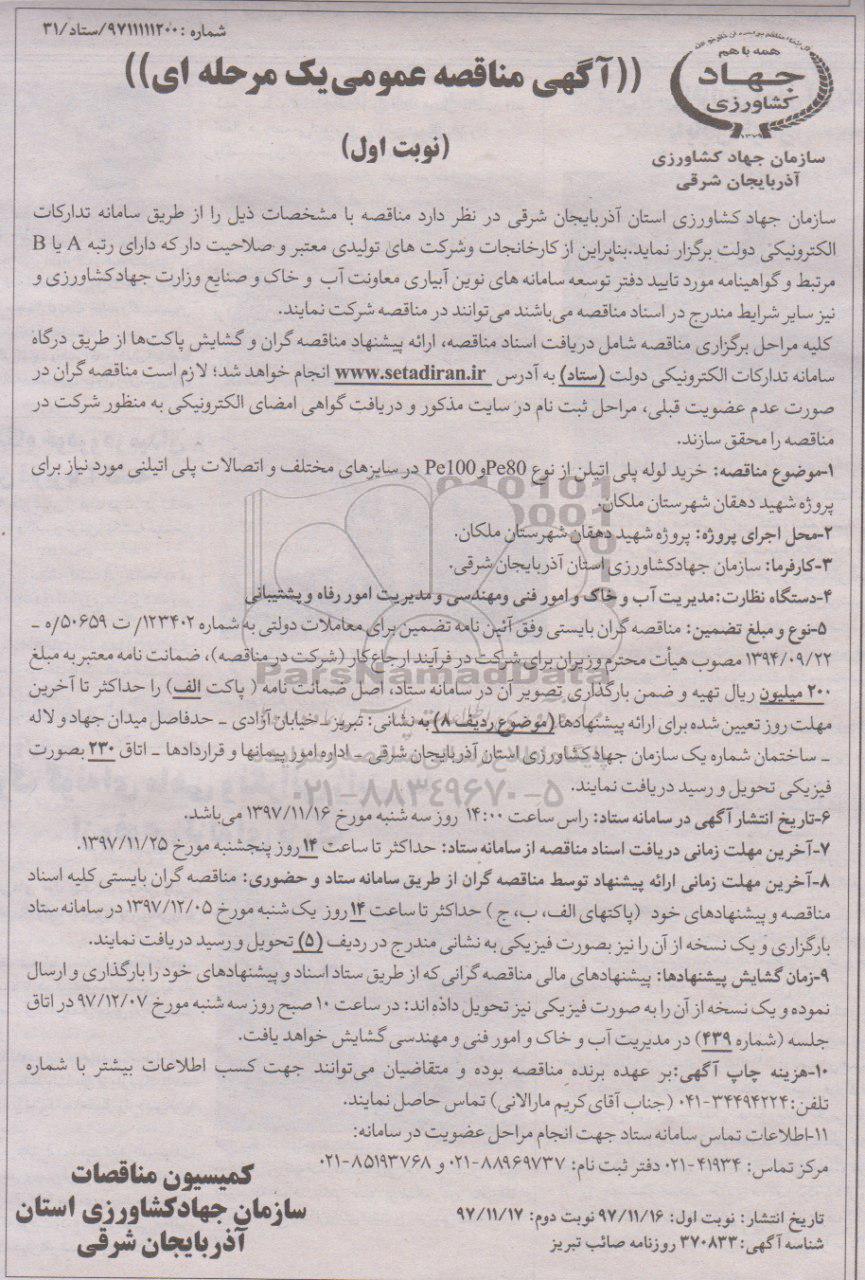 شماره: ۹۷۱۱۱۱۱۲۰۰/ستاد/۳۱
همه با هم
جهاد
کشاورزی
سازمان جهاد کشاورزی
آذربایجان شرقی
((آگهی مناقصه عمومی یک مرحله ای))
(نوبت اول)
سازمان جهاد کشاورزی استان آذربایجان شرقی در نظر دارد مناقصه با مشخصات ذیل را از طریق سامانه تدارکات
الکترونیکی دولت برگزار نماید.بنابراین از کارخانجات وشرکت های تولیدی معتبر و صلاحیت دار که دارای رتبه A یا B
مرتبط و گواهینامه مورد تایید دفتر توسعه سامانه های نوین آبیاری معاونت آب و خاک و صنایع وزارت جهادکشاورزی و
نیز سایر شرایط مندرج در اسناد مناقصه می‌باشند می‌توانند در مناقصه شرکت نمایند.
کلیه مراحل برگزاری مناقصه شامل دریافت اسناد مناقصه، ارائه پیشنهاد مناقصه گران و گشایش پاکت‌ها از طریق درگاه
سامانه تدارکات الکترونیکی دولت (ستاد) به آدرس www.setadiran.ir انجام خواهد شد؛ لازم است مناقصه گران در
صورت عدم عضویت قبلی، مراحل ثبت نام در سایت مذکور و دریافت گواهی امضای الکترونیکی به منظور شرکت در
مناقصه را محقق سازند.
۱-موضوع مناقصه: خرید لوله پلی اتیلن از نوع Pe80وPe100 در سایزهای مختلف و اتصالات پلی اتیلنی مورد نیاز برای
پروژه شهید دهقان شهرستان ملکان.
۲-محل اجرای پروژه: پروژه شهید دهقان شهرستان ملکان.
۳-کارفرما: سازمان جهادکشاورزی استان آذربایجان شرقی.
۴-دستگاه نظارت:مدیریت آب و خاک و امور فنی ومهندسی و مدیریت امور رفاه و پشتیبانی
۵-نوع و مبلغ تضمین: مناقصه گران بایستی وفق آئین نامه تضمین برای معاملات دولتی به شماره ۱۲۳۴۰۲/ ت ۵۰۶۵۹/ه ـ
۱۳۹۴/۰۹/۲۲ مصوب هیأت محترم وزیران برای شرکت در فرآیند ارجاع کار (شرکت در مناقصه)، ضمانت نامه معتبر به مبلغ
۲۰۰ میلیون ریال تهیه و ضمن بارگذاری تصویر آن در سامانه ستاد، اصل ضمانت نامه ( پاکت الف) را حداکثر تا آخرین
مهلت روز تعیین شده برای ارائه پیشنهادها (موضوع ردیف ۸) به نشانی: تبریز ـ خیابان آزادی ـ حدفاصل میدان جهاد و لاله
ـ ساختمان شماره یک سازمان جهادکشاورزی استان آذربایجان شرقی ـ اداره امور پیمانها و قراردادها ـ اتاق ۲۳۰ بصورت
فیزیکی تحویل و رسید دریافت نمایند.
۶-تاریخ انتشار آگهی در سامانه ستاد: راس ساعت ۱۴:۰۰ روز سه شنبه مورخ ۱۳۹۷/۱۱/۱۶ می‌باشد.
۷-آخرین مهلت زمانی دریافت اسناد مناقصه از سامانه ستاد: حداکثر تا ساعت ۱۴ روز پنجشنبه مورخ ۱۳۹۷/۱۱/۲۵.
۸-آخرین مهلت زمانی ارائه پیشنهاد توسط مناقصه گران از طریق سامانه ستاد و حضوری: مناقصه گران بایستی کلیه اسناد
مناقصه و پیشنهادهای خود (پاکتهای الف، ب، ج ) حداکثر تا ساعت ۱۴ روز یک شنبه مورخ ۱۳۹۷/۱۲/۰۵ در سامانه ستاد
بارگزاری و یک نسخه از آن را نیز بصورت فیزیکی به نشانی مندرج در ردیف (۵) تحویل و رسید دریافت نمایند.
۹-زمان گشایش پیشنهادها: پیشنهادهای مالی مناقصه گرانی که از طریق ستاد اسناد و پیشنهادهای خود را بارگذاری و ارسال
نموده و یک نسخه از آن را به صورت فیزیکی نیز تحویل داده اند: در ساعت ۱۰ صبح روز سه شنبه مورخ ۹۷/۱۲/۰۷ در اتاق
جلسه (شماره ۴۳۹) در مدیریت آب و خاک و امور فنی و مهندسی گشایش خواهد یافت.
۱۰-هزینه چاپ آگهی:بر عهده برنده مناقصه بوده و متقاضیان می‌توانند جهت کسب اطلاعات بیشتر با شماره
تلفن: ۳۴۴۹۴۲۲۴-۰۴۱ (جناب آقای کریم مارالانی) تماس حاصل نمایند.
۱۱-اطلاعات تماس سامانه ستاد جهت انجام مراحل عضویت در سامانه:
مرکز تماس: ۴۱۹۳۴-۰۲۱ دفتر ثبت نام: ۸۸۹۶۹۷۳۷-۰۲۱ و ۸۵۱۹۳۷۶۸-۰۲۱
تاریخ انتشار: نوبت اول: ۹۷/۱۱/۱۶ نوبت دوم: ۹۷/۱۱/۱۷
شناسه آگهی: ۳۷۰۸۳۳ روزنامه صائب تبریز
کمیسیون مناقصات
سازمان جهادکشاورزی استان
آذربایجان شرقی
ParsNamadData
۰۲۱-۸۸۳۴۹۶۷۰-۵